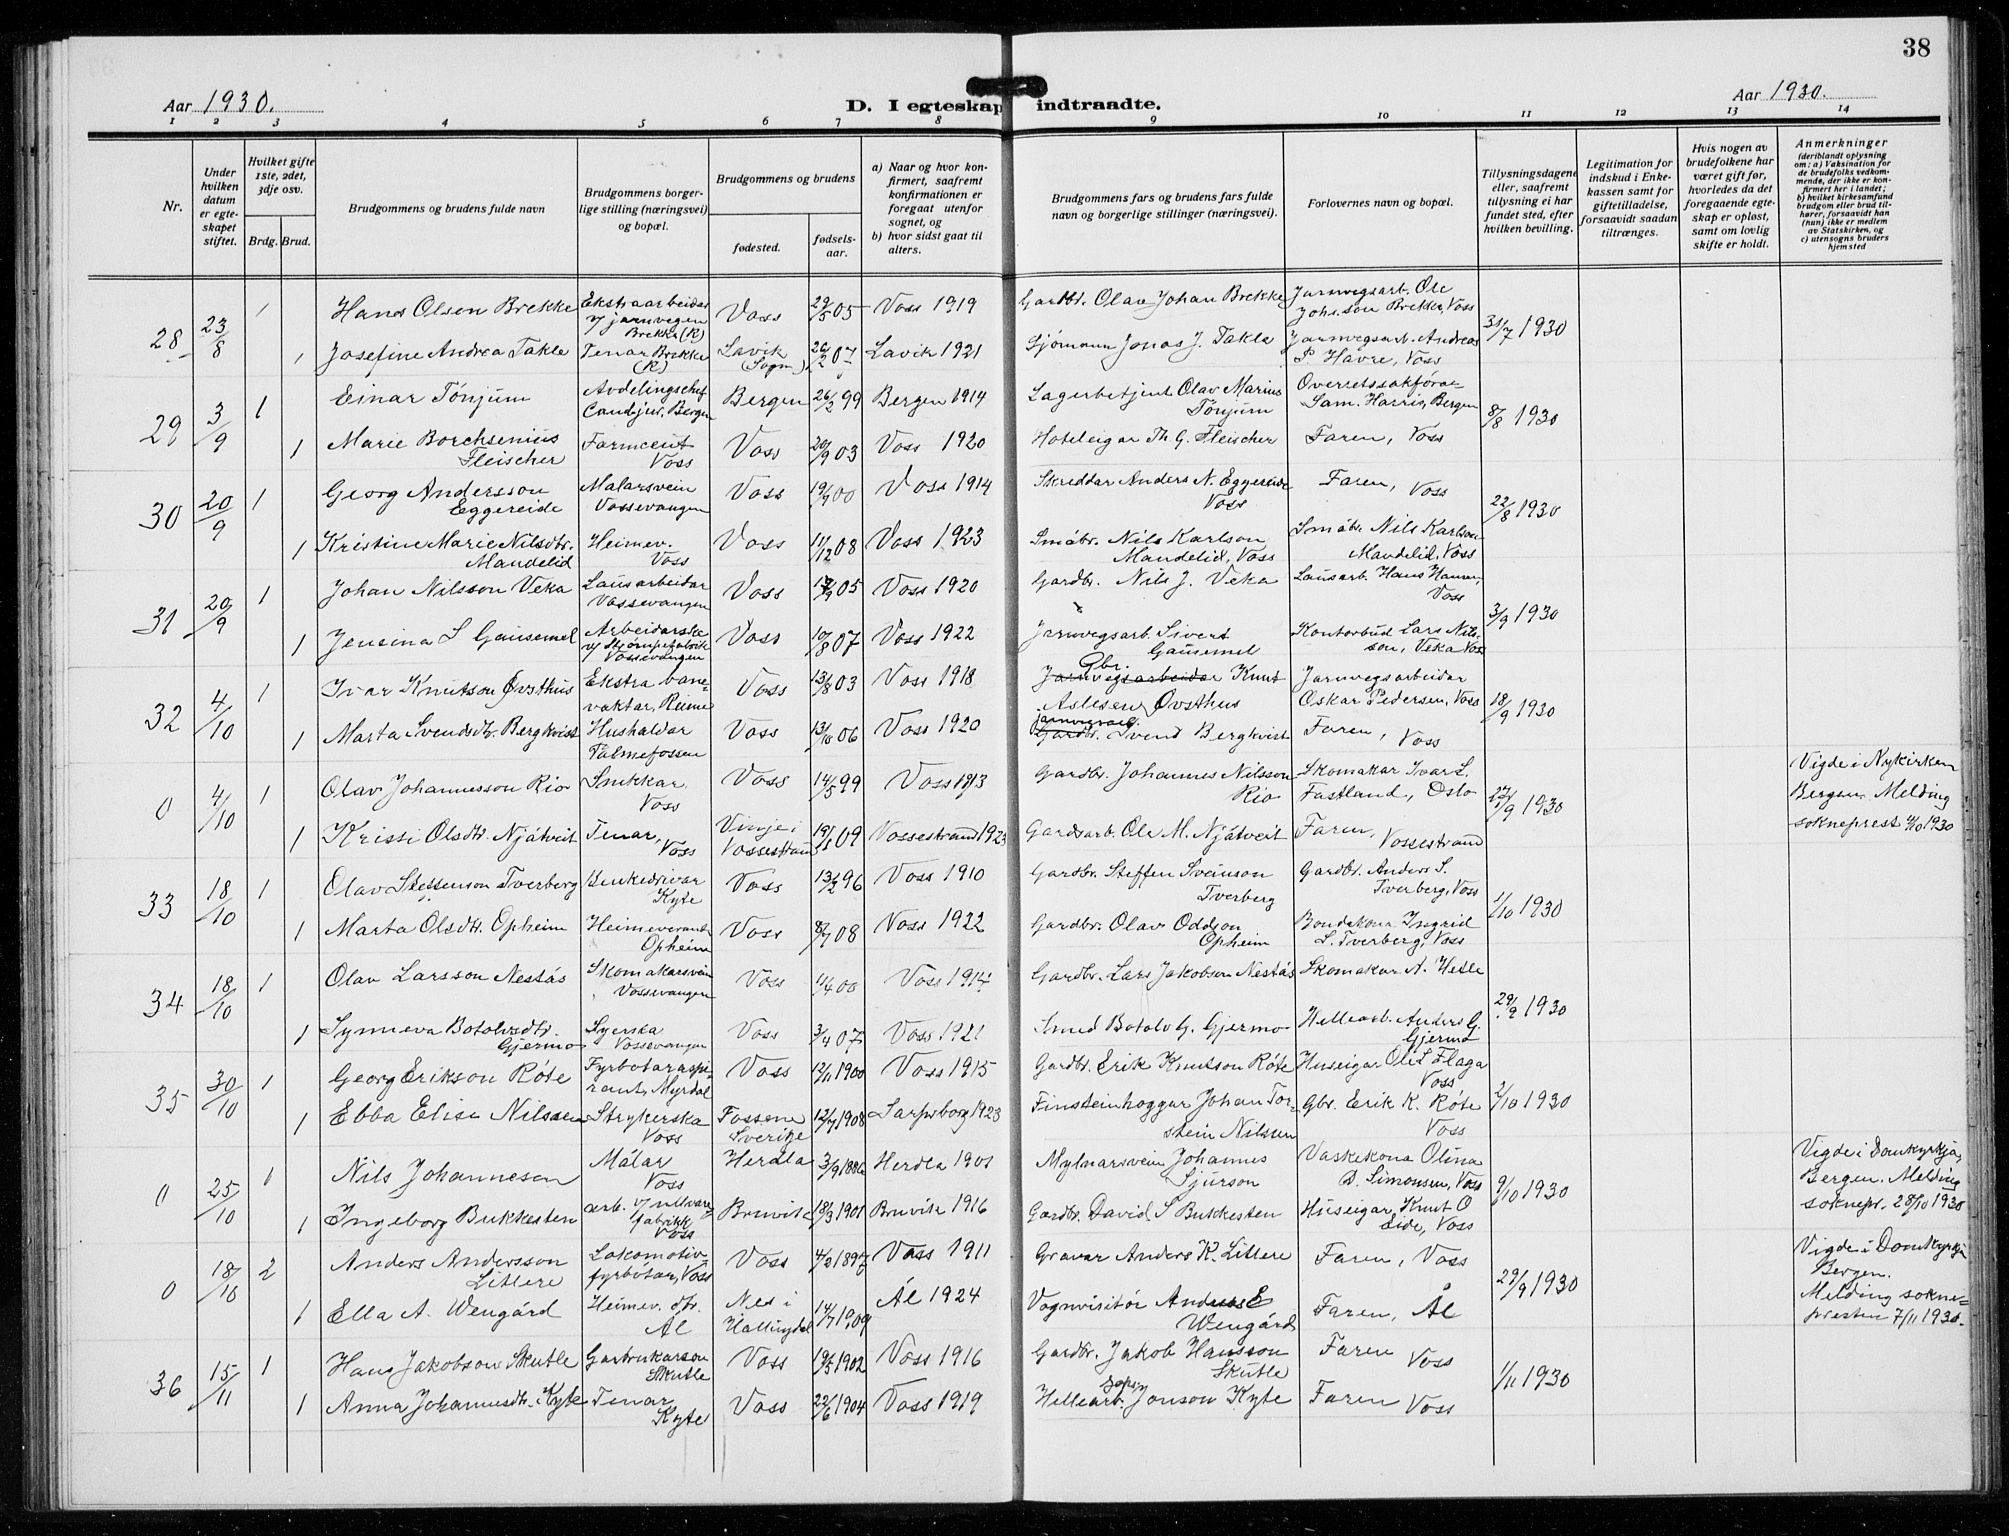 38
Aar 1930.
D. I egteskap indtraadte.
Aar 1930.
1 2 3 4 5 6 7 8 9 10 11 12 13 14
Nr.
Under hvilken datum er egteskapet stiftet.
Hvilket gifte 1ste, 2det, 3dje osv.
Brdg. Brud.
Brudgommens og brudens fulde navn
Brudgommens borgerlige stilling (næringsvei) og bopæl.
Brudgommens og brudens
fødested.
fødselsaar.
a) Naar og hvor konfirmert, saafremt konfirmationen er foregaat utenfor sognet, og
b) hvor sidst gaat til alters.
Brudgommens fars og brudens fars fulde navn og borgerlige stillinger (næringsvei).
Forlovernes navn og bopæl.
Tillysningsdagene eller, saafremt tillysning ei har fundet sted, efter hvilken bevilling.
Legitimation for indskud i Enkekassen samt for giftetilladelse, forsaavidt saadan tiltrænges.
Hvis nogen av brudefolkene har været gift før, hvorledes da det foregaaende egteskap er opløst, samt om lovlig skifte er holdt.
Anmerkninger
(deriblandt oplysning om: a) Vaksination for de brudefolks vedkommende, der ikke er konfirmert her i landet; b) hvilket kirkesamfund brudgom eller brud tilhører, forsaavidt han (hun) ikke er medlem av Statskirken, og c) utensogns bruders hjemsted
28 23/8 1 Hans Olsen Brekke Ekstraarbeidar v/ jarnvegen Brekke (R) Voss 29/5 05 Voss 1919 Gardbr. Olav Johan Brekke Jarnvegsarb. Ole Johs.son Brekke, Voss 31/7 1930
1 Josefine Andrea Takle Tenar Brekke (R) Lavik (Sogn) 26/2 07 Lavik 1921 Sjømann Jonas J. Takle Jarnvegsarb. Andreas P. Havre, Voss
29 3/9 1 Einar Tönjum Avdelingschef Cand.jur. Bergen Bergen 26/2 99 Bergen 1914 Lagerbetjent Olav Marius Tönjum Overretssakförar Sam. Harris, Bergen 8/8 1930
1 Marie Borchsenius Fleischer Farmceut Voss Voss 20/9 03 Voss 1920 Hoteleigar Th G. Fleischer Faren, Voss
30 20/9 1 Georg Andersson Eggereide Malarsvein Vossevangen Voss 19/7 00 Voss 1914 Skreddar Anders N. Eggereide Voss Faren, Voss 22/8 1930
1 Kristine Marie Nilsdtr. Mandelid Heimev. Voss Voss 11/12 08 Voss 1923 Småbr. Nils Karlson Mandelid, Voss Småbr. Nils Karlson Mandelid, Voss
31 20/9 1 Johan Nilsson Veka Lausarbeidar Vossevangen Voss 17/9 05 Voss 1920 Gardbr. Nils J. Veka Lausarb. Hans Hansen, Voss 3/9 1930
1 Jensina S Gausemel Arbeidarske v/ Strømpefabrik Vossevangen Voss 10/8 07 Voss 1922 Jarnvegsarb. Sivert Gausemel Kontorbud Lars Nilsson, Veka Voss
32 4/10 1 Ivar Knutson Øvsthus Ekstra banevaktar, Reime Voss 13/8 03 Voss 1918 Jarnvegsarbeidar Gbr. Knut Aslesen Øvsthus Jarnvegsarbeidar Oskar Pedersen, Voss 18/9 1930
1 Marta Svendsdtr. Bergkvist Hushaldar Palmefossen Voss 13/10 06 Voss 1920 Gardbr. Svend Bergkvist Faren, Voss
0 4/10 1 Olav Johannesson Rio Snikkar, Voss Voss 14/5 99 Voss 1913 Gardbr. Johannes Nilsson Rio Skomakar Ivar L. Fastland, Oslo 27/9 1930 Vigde i Nykirken Bergen. Melding sokneprest 4/10 1930
1 Kristi Olsdtr. Njåtveit Tenar, Voss Vinje i Vossestrand 19/1 09 Vossestrand 1923 Gardsarb. Ole M. Njåtveit Faren, Vossestrand
33 18/10 1 Olav Steffenson Tverberg Benkedrivar Kyte Voss 13/2 96 Voss 1910 Gardbr. Steffen Sveinson Tverberg Gardbr. Anders S. Tverberg, Voss 1/10 1930
1 Marta Olsdtr. Opheim Heimeverant Opheim Voss 8/7 08 Voss 1922 Gardbr. Olav Oddson Opheim Bondekona Ingrid L. Tverberg, Voss
34 18/10 1 Olav Larsson Nestås Skomakarsvein Vossevangen Voss 11/4 00 Voss 1914 Gardbr. Lars Jakobson Nestås Skomakar A. Hetle 29/9 1930
1 Synneva Botolvsdtr. Gjermo Syerska Vossevangen Voss 3/4 07 Voss 1921 Smed Botolv G. Gjermo Hellearb. Anders G. Gjermo
35 30/10 1 Georg Erikson Röte Fyrbøtaraspirant, Myrdal Voss 12/11 1900 Voss 1915 Gardbr. Erik Knutson Röte Huseigar Ole L Flaga Voss 2/10 1930
1 Ebba Elise Nilssen Strykerska Voss Fossene Sverige 12/7 1908 Sarpsborg 1923 Finsteinhoggar Johan Torstein Nilssen Gbr. Erik K. Röte Voss
0 25/10 1 Nils Johannesen Målar Voss Herdla 3/9 1886 Herdla 1901 Mylnarsvein Johannes Sjurson Vaskekona Olina D. Simonsen, Voss 9/10 1930 Vigde i Domkyrkja, Bergen. Melding soknepr. 28/10 1930
1 Ingeborg Bukkesten arb. v/ ullvarefabrikk Voss Bruvik 18/3 1901 Bruvik 1916 Gardbr. David S Bukkesten Huseigar Knut O Lide, Voss
0 18/10 2 Anders Andersson Littere Lokomotivfyrbøtar, Voss Voss 4/2 1897 Voss 1911 Gravar Anders K. Littere Faren, Voss 29/9 1930 Vigde i Domkyrkja Bergen. Melding soknepresten 7/11 1930.
1 Ella A. Wengård Heimev. dtr. Ål Nes i Hallingdal 14/7 1909 Ål 1924 Vognvisitör Anders E Wengård Faren, Ål
36 15/11 1 Hans Jakobson Skutle Garbrukarson Skutle Voss 19/5 1902 Voss 1916 Gardbr. Jakob Hansson Skutle Faren Voss 1/11 1930
1 Anna Johannesdtr. Kyte Tenar Kyte Voss 22/6 1904 Voss 1919 Hellearb. Jonson Kyte Faren Voss